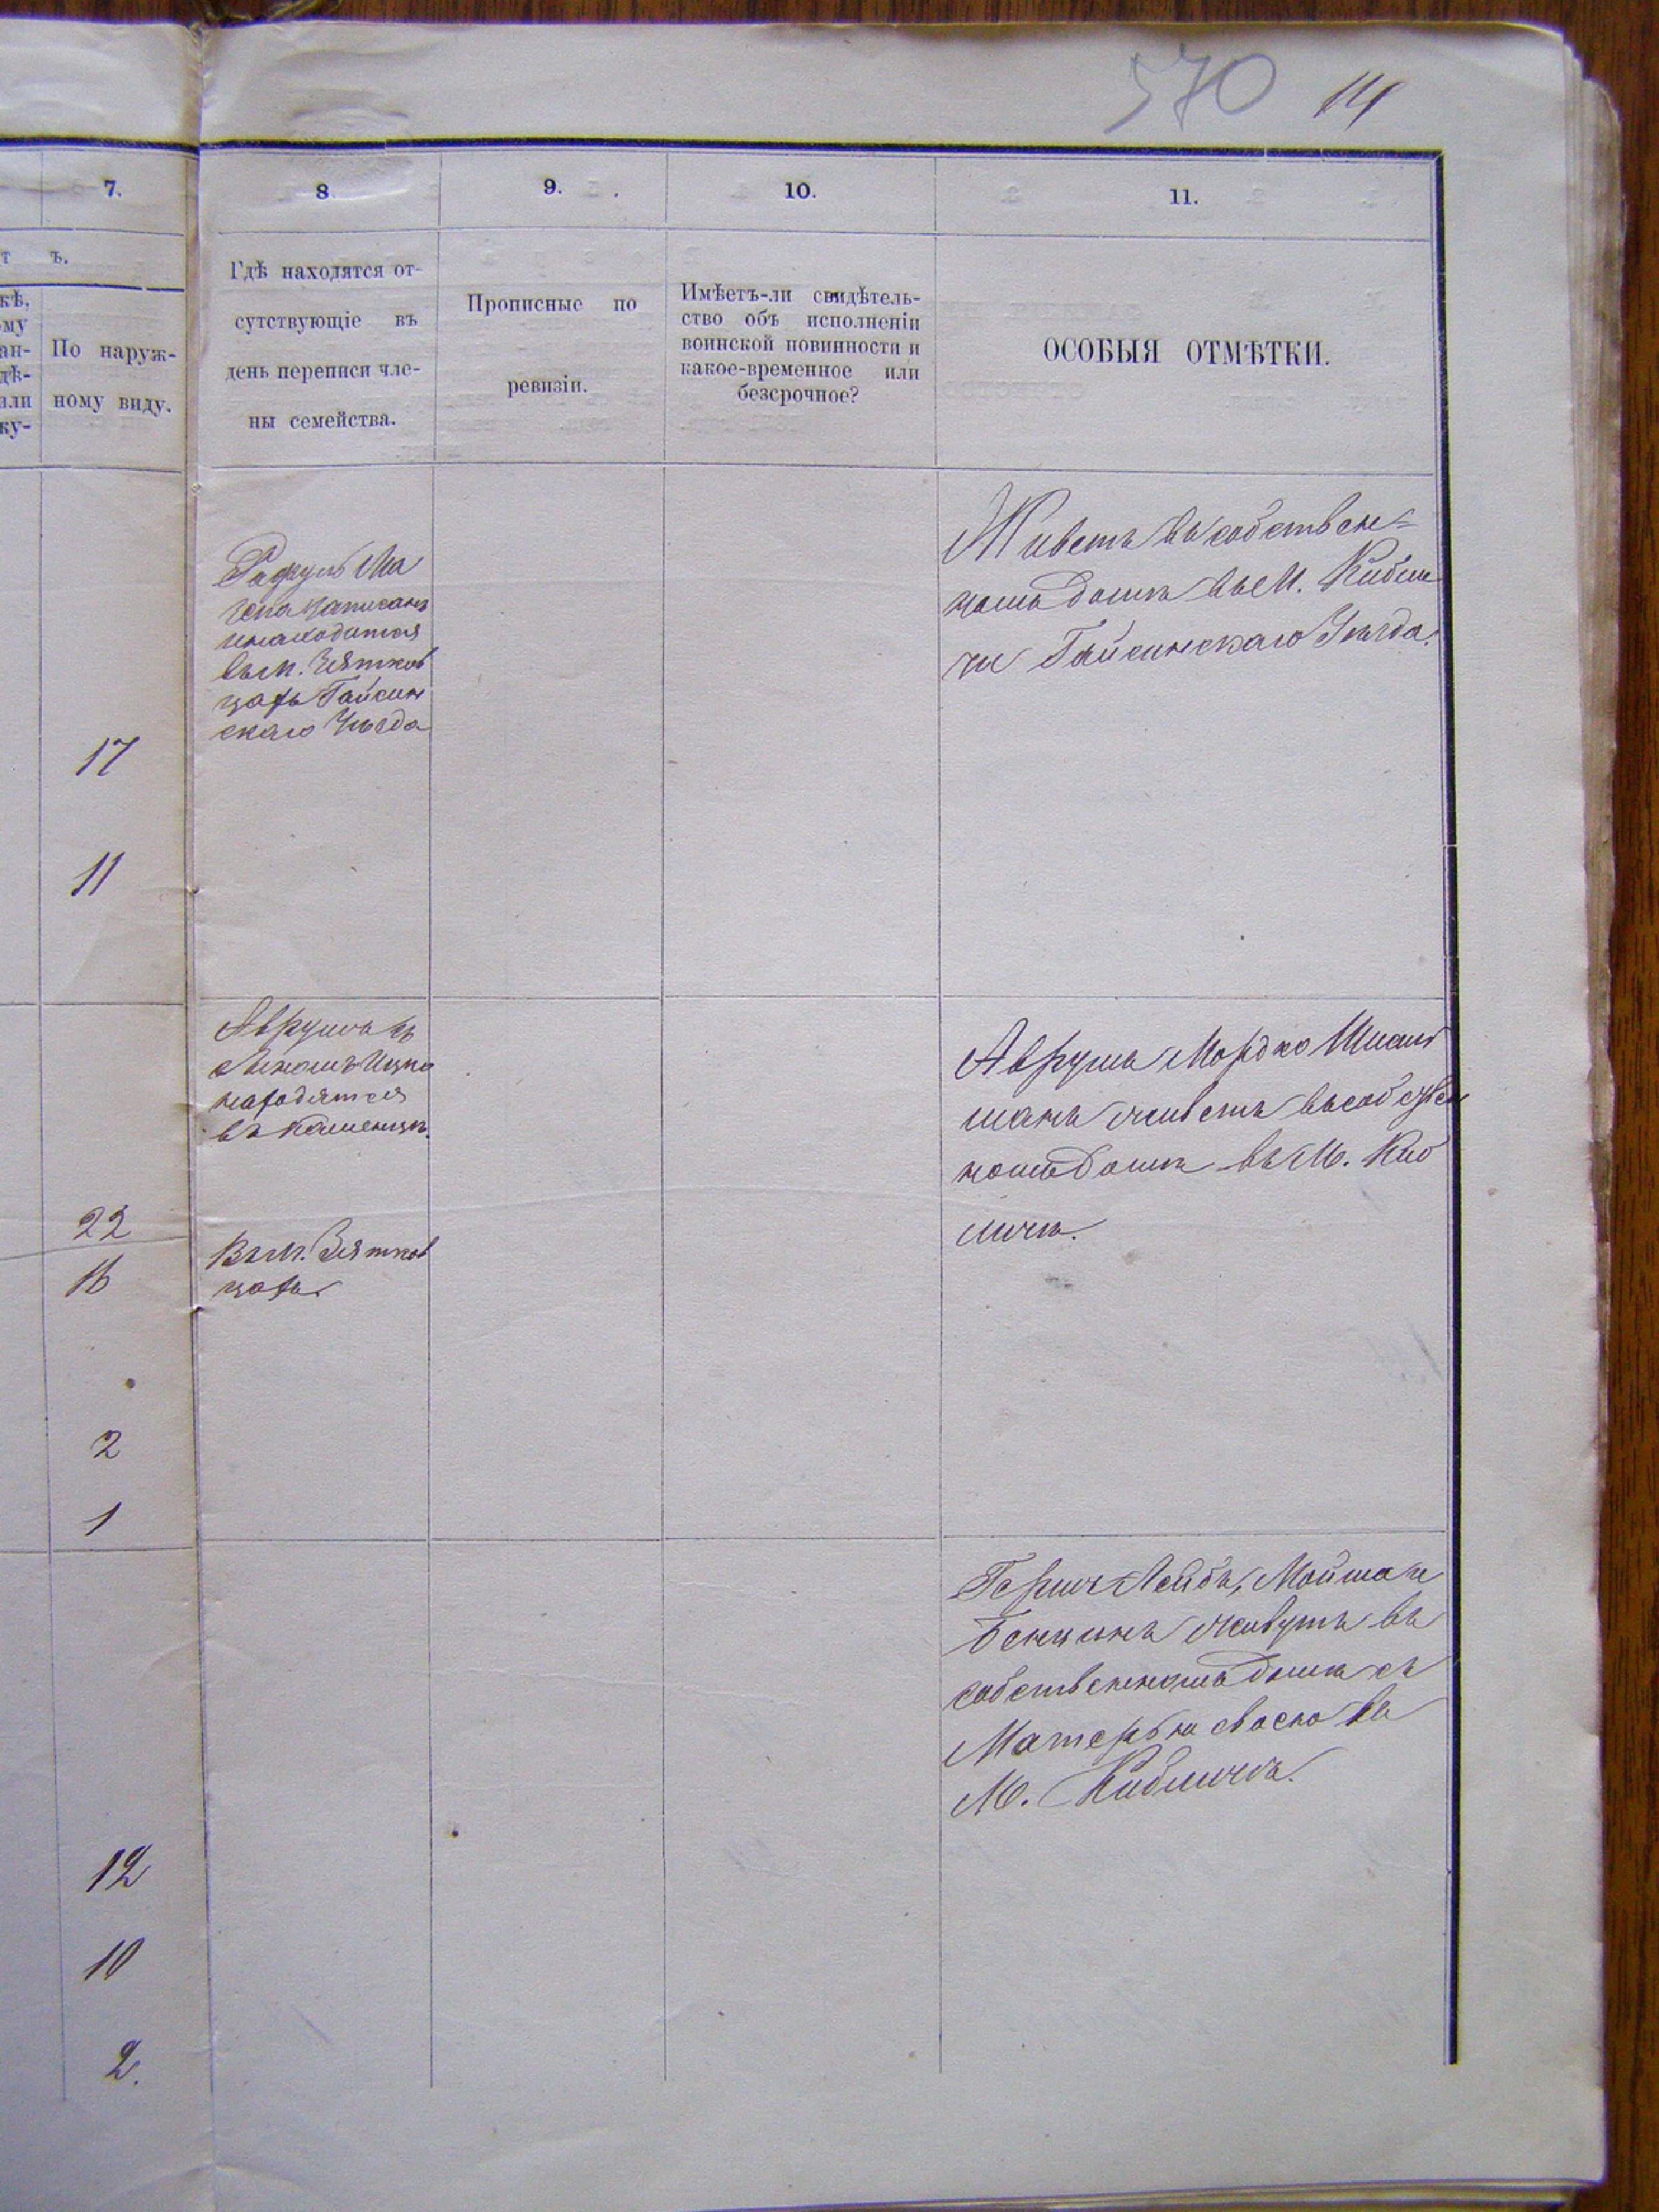 570 14
7. 8. 9. 10. 11.
т ъ.
кѣ,
ому
ан-
дѣ-
или
ку-
По наруж-
ному виду.
Гдѣ находятся от-
сутствующіе въ
день переписи чле-
ны семейства.
Прописные по
ревизіи.
Имѣетъ-ли свидѣтель-
ство объ исполненіи
воинской повинности и
какое-временное или
безсрочное?
ОСОБЫЯ ОТМѢТКИ.
17
11
записанъ
и находится
въ м.
цахъ Гайсин
скаго Уѣзда
Живетъ въ собствен-
номъ домѣ въ м. Кибли
чи Гайсинскаго Уѣзда.
22
16
2
1
Аврумъ
Ицко
находятся
въ Каменцѣ.
Въ м.
цахъ
Аврумъ Мордко
манъ живетъ въ собствен
номъ домѣ въ М. Киб
личѣ.
12
10
2.
Гершъ Лейбъ, Мойша и
Бенционъ живутъ въ
собственномъ домѣ съ
Матерью своею въ
М. Кибличѣ.